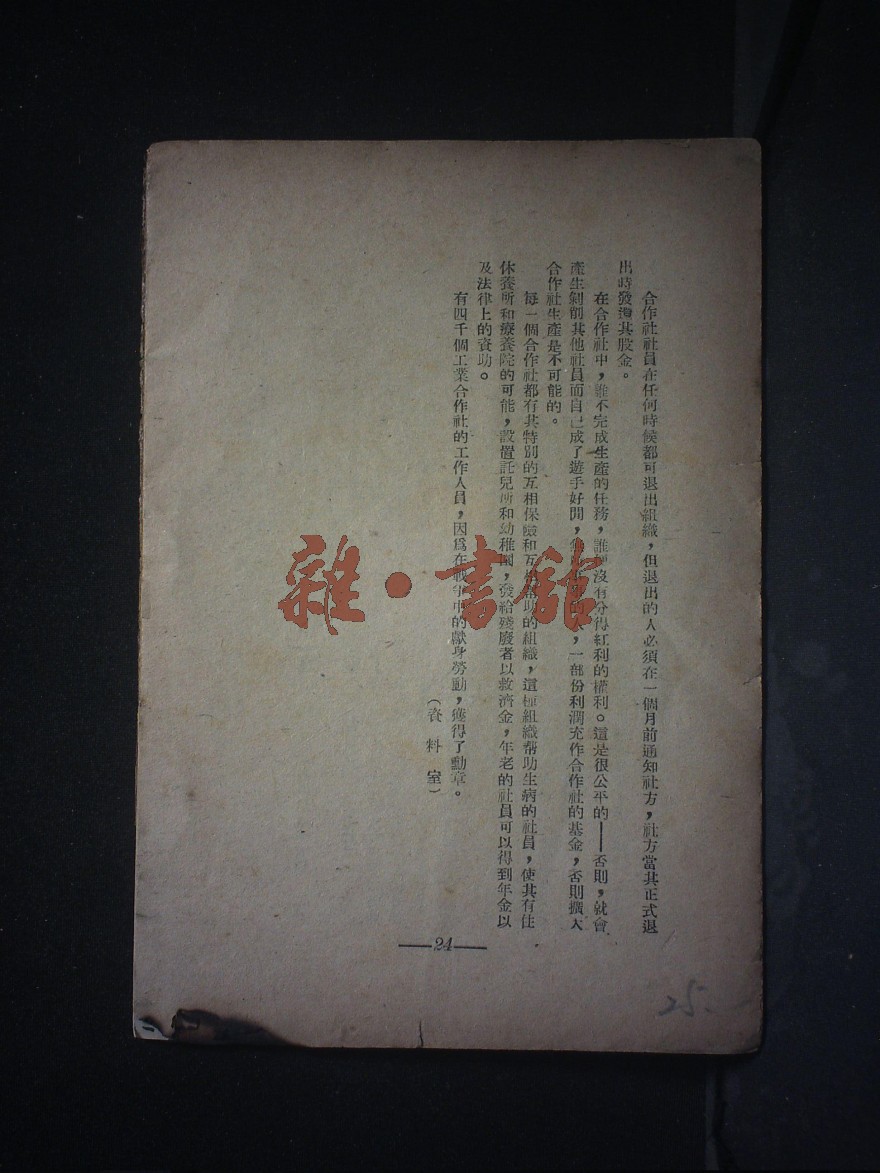 合作社社員在任何時候都可退出組織，但退出的人必須在一個月前通知社方，社方當其正式退
出時發還其股金。
在合作社中，誰不完成生產的任務，誰便沒有分得紅利的權利。這是很公平的——否則，就會
產生剝削其他社員而自己成了遊手好閒，人，一部份利潤充作合作社的基金，否則擴大
合作社生產是不可能的。
每一個合作社都有其特別的互相保險和互相幫助的組織，這種組織幫助生病的社員，使其有住
休養所和療養院的可能，設置託兒所和幼稚園，發給殘廢者以救濟金，年老的社員可以得到年金以
及法律上的資助。
有四千個工業合作社的工作人員，因爲在戰爭中的獻身勞動，獲得了勳章。
（資料室）
—24—
25.
雜·書館